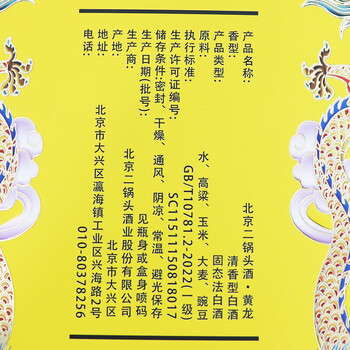 产品名称：北京二锅头酒·黄龙
香型：清香型白酒
产品类型：固态法白酒
原料：水、高粱、玉米、大麦、豌豆
执行标准：GB/T10781.2-2022(一级)
生产许可证编号：SC11511150818017
储存条件：密封、干燥、通风、阴凉、常温、避光保存
生产日期(批号)：见瓶身或盒身喷码
生产商：北京二锅头酒业股份有限公司
产地：北京市大兴区
地址：北京市大兴区瀛海镇工业区兴海路2号
电话：010-80378256